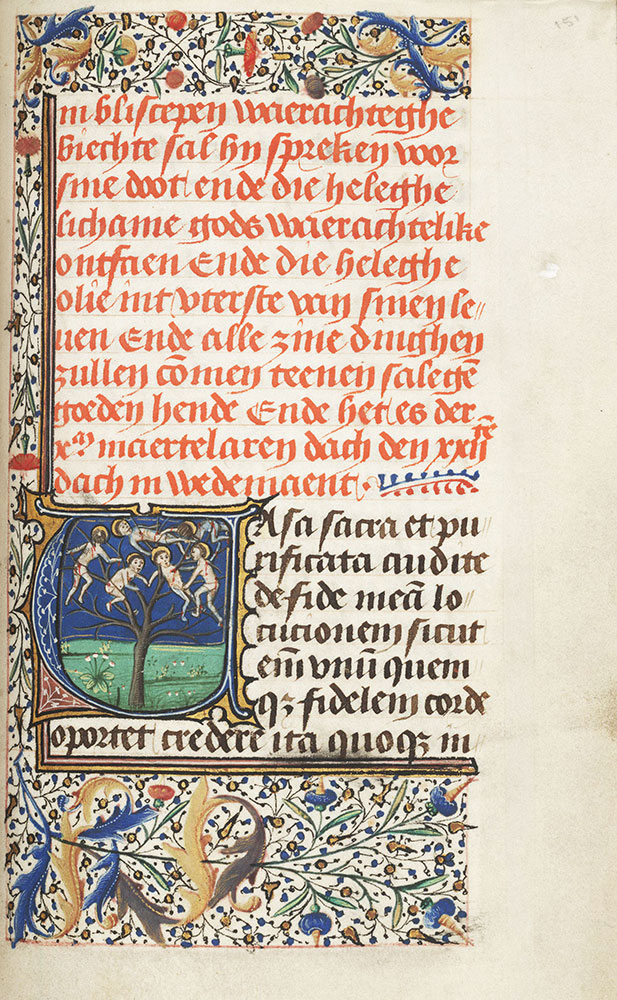 151
in bliscepen waerachteghe
biechte sal hy spreken voor
sine doot ende die heleghe
lichame gods waerachtelike
ontfaen Ende die heleghe
olie int vterste van sinen le„
uen Ende alle zine dinghen
zullen cōmen teenen salegē
goeden hende Ende het es der
xᵐ maertelaren dach den xxijᵗᵉ
dach in wedemaent ·
Uasa sacra et pu
rificata audite
de fide meā lo
cucionem sicut
em̄ vnū quem
qꝫ fidelem corde
oportet credere ita quoqꝫ in